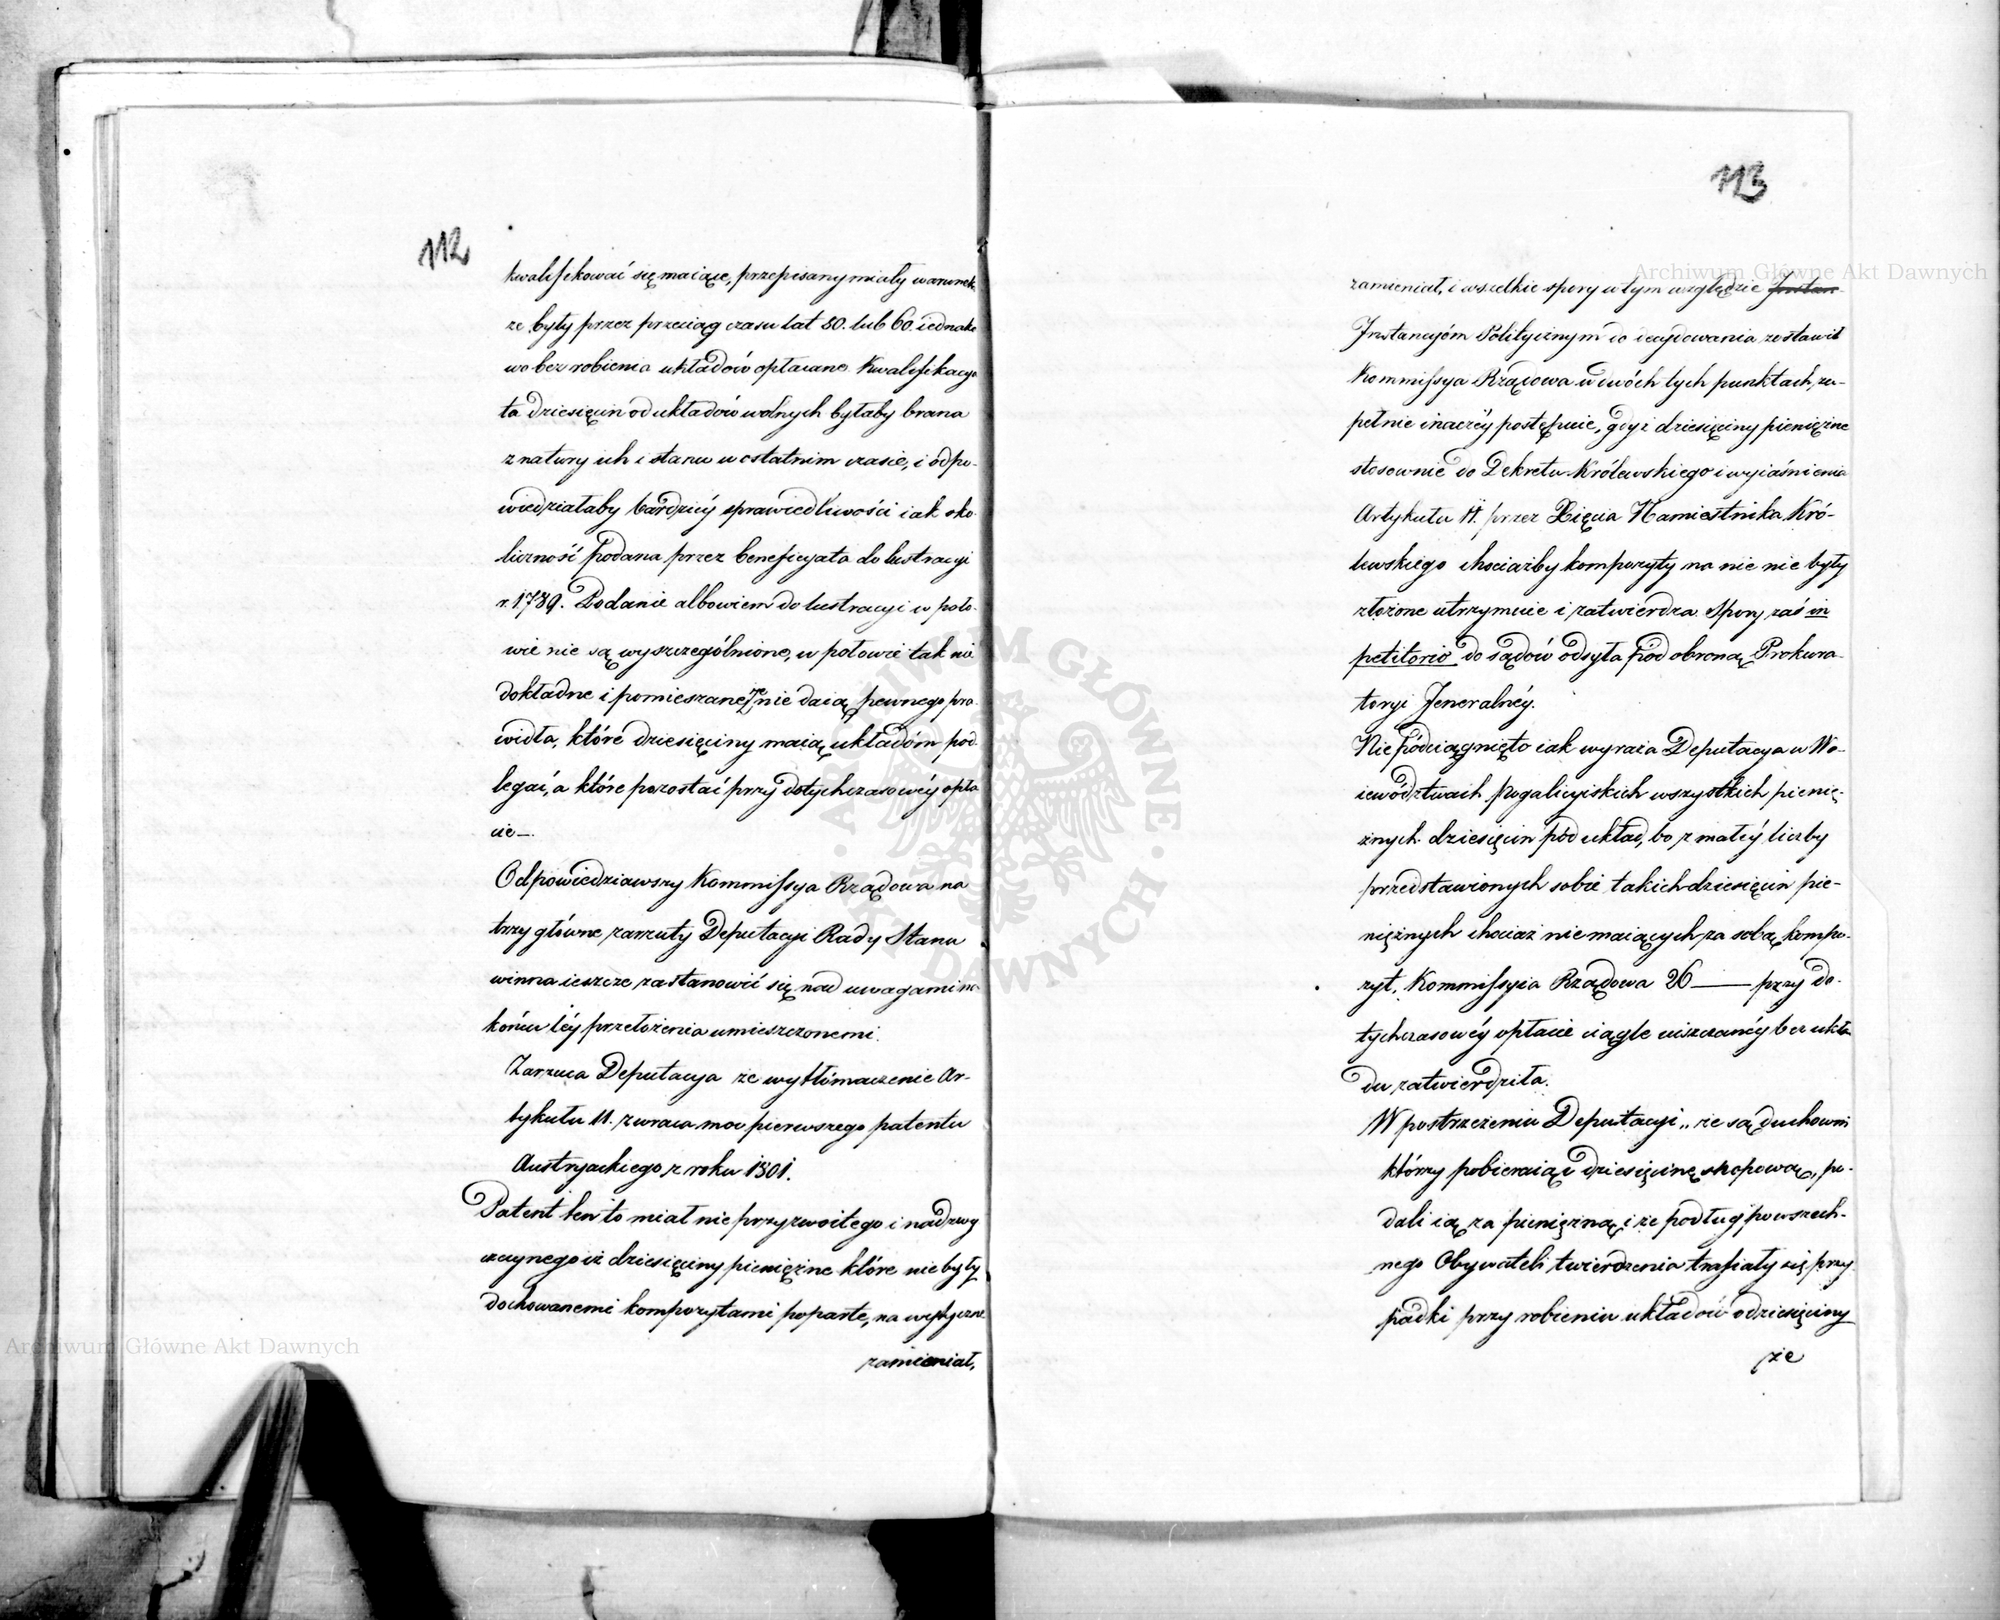 112
kwalifikować się maiące, przepisany miały warunek
że były przez przeciąg czasu lat 50. lub 60. iednako
wo bez robienia układów opłacane. Kwalifikacya
ta dziesięcin od układów wolnych byłaby brana
z natury ich i stanu w ostatnim czasie, i odpo-
wiedziałaby bardziéy sprawiedliwości iak oko-
liczność podana przez beneficyata do lustracyi
r. 1789. Podanie albowiem do lustracyi w poło-
wie nie są wyszczególnione, w połowie tak nie
dokładne i pomieszane, że nie daią pewnego pra-
widła, które dziesięciny maią układóm pod-
legać, a które pozostać przy dotychczasowéy opła
cie—.
Odpowiedziawszy Kommissya Rządowa na
trzy główne zarzuty Deputacyi Rady Stanu
winna ieszcze zastanowić się nad uwagami na
końcu téy przełożenia umieszczonemi.
Zarzuca Deputacya że wytłómaczenie Ar-
tykułu 11. zwraca moc pierwszego patentu
Austryackiego z roku 1801.
Patent ten to miał nie przyzwoitego i nadzwy
czaynego iż dziesięciny pieniężne które nie były
dochowanemi kompozytami poparte, na wytyczne
zamieniał,
113
zamieniał, i wszelkie spory w tym względzie Instan-
Instancyóm Politycznym do decydowania zostawił
Kommissya Rządowa w dwóch tych punktach, zu-
pełnie inaczéy postępuie, gdyż dziesięciny pieniężne
stosownie do Dekretu Królewskiego i wyiaśnienia
Artykułu 11. przez Xięcia Namiestnika Kró-
lewskiego chociażby kompozyty na nie nie były
złożone utrzymuie i zatwierdza. Spory zaś in
petitorio do sądów odsyła pod obroną Prokura-
toryi Jeneralnéy.
Nie pódciągnięto iak wyraża Deputacya w Wo-
iewództwach pogalicyiskich wszystkich pienię-
żnych dziesięcin pód układ, bo z małéy liczby
przedstawionych sobie takich dziesięcin pie-
niężnych chociaż nie maiących za sobą kompo-
zyt, Kommissyia Rządowa 26 — przy do-
tychczasowéy opłacie ciągle uiszczanéy bez ukła-
du zatwierdziła.
W postrzeżeniu Deputacyi „że są duchowni
którzy pobieraiąc dziesięcinę snopową, po-
dali ią za pieniężną i że podług powszech-
nego Obywateli twierdzenia trafiały się przy
padki przy robieniu układów o dziesięciny
że
Archiwum Główne Akt Dawnych
Archiwum Główne Akt Dawnych
ARCHIWUM GŁÓWNE · AKT DAWNYCH ·